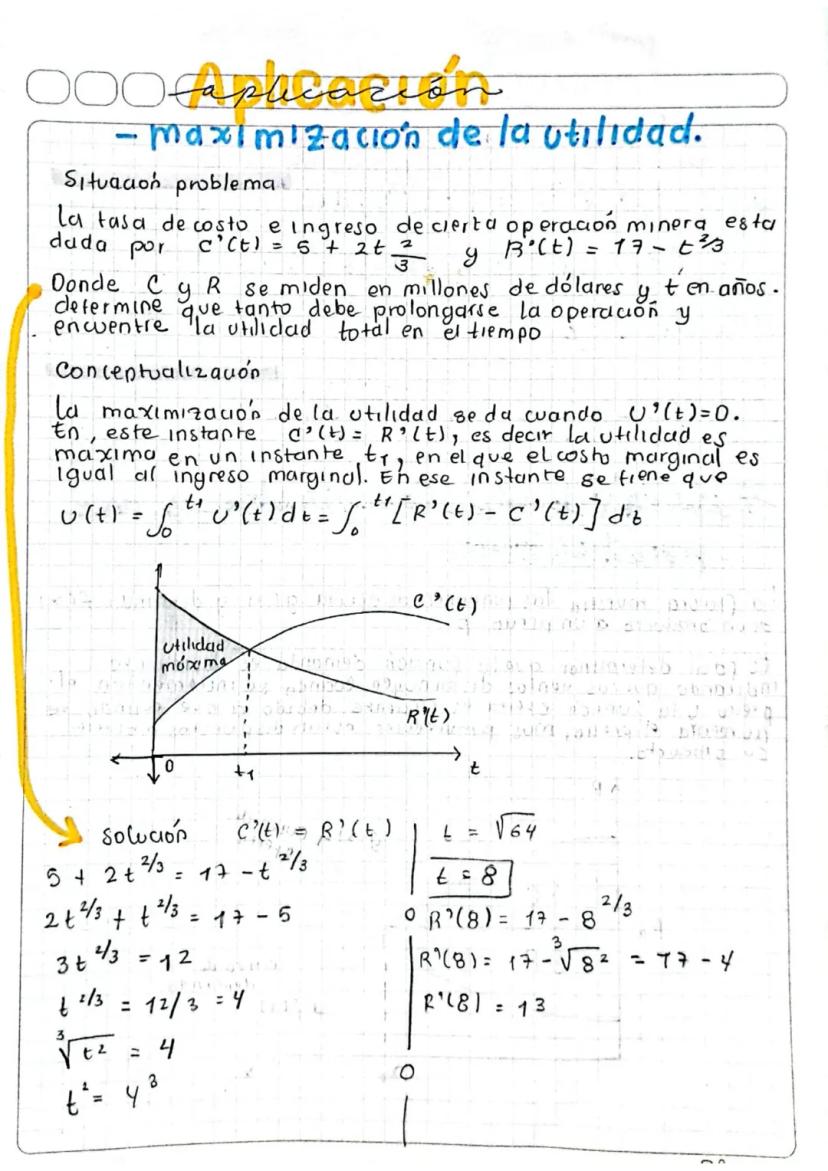 Aplicación
aplicación
- maximización de la utilidad.
Situación problema
La tasa de costo e ingreso de cierta operación minera esta
dada por C'(t) = 5 + 2t 2/3 y R'(t) = 17 - t^2/3
Donde C y R se miden en millones de dólares y t en años.
determine que tanto debe prolongarse la operación y
encuentre la utilidad total en el tiempo
Conceptualización
La maximización de la utilidad se da cuando U'(t)=0.
En, este instante C'(t) = R'(t), es decir la utilidad es
maxima en un instante t1, en el que el costo marginal es
igual al ingreso marginal. En ese instante se tiene que
U(t) = ∫0 t1 U'(t) dt = ∫0 t1 [R'(t) - C'(t)] dt
C'(t)
utilidad
máxima
R'(t)
0
t1
t
Solución C'(t) = R'(t)
5 + 2t^2/3 = 17 - t^2/3
2t^2/3 + t^2/3 = 17 - 5
3t^2/3 = 12
t^2/3 = 12/3 = 4
∛t² = 4
t² = 4³
t = √64
t = 8
R'(8) = 17 - 8^2/3
R'(8) = 17 - ∛8² = 17 - 4
R'(8) = 13